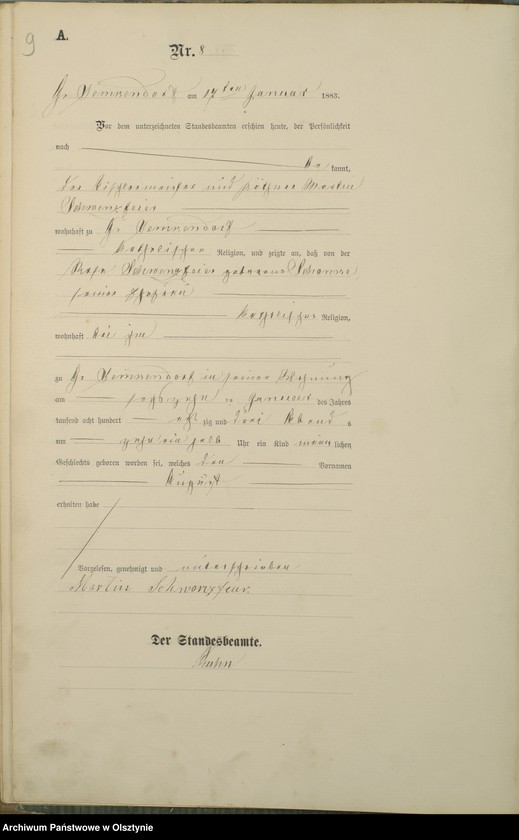 9
A.
Nr. 8
Gr. Lemkendorf am 17ten Januar 1883.
Vor dem unterzeichneten Standesbeamten erschien heute, der Persönlichkeit
nach be kannt,
der Tischlermeister und Martin
wohnhaft zu Gr. Lemkendorf
katholischer Religion, und zeigte an, daß von der
Rosa geborene
seiner Ehefrau
katholischer Religion,
wohnhaft bei ihm
zu Gr. Lemkendorf in seiner Wohnung
am sechszehn ten Januar des Jahres
tausend acht hundert acht zig und drei Abend s
um zehn ein halb Uhr ein Kind männ lichen
Geschlechts geboren worden sei, welches den Vornamen
August
erhalten habe
Vorgelesen, genehmigt und unterschrieben
Martin
Der Standesbeamte.
Archiwum Państwowe w Olsztynie